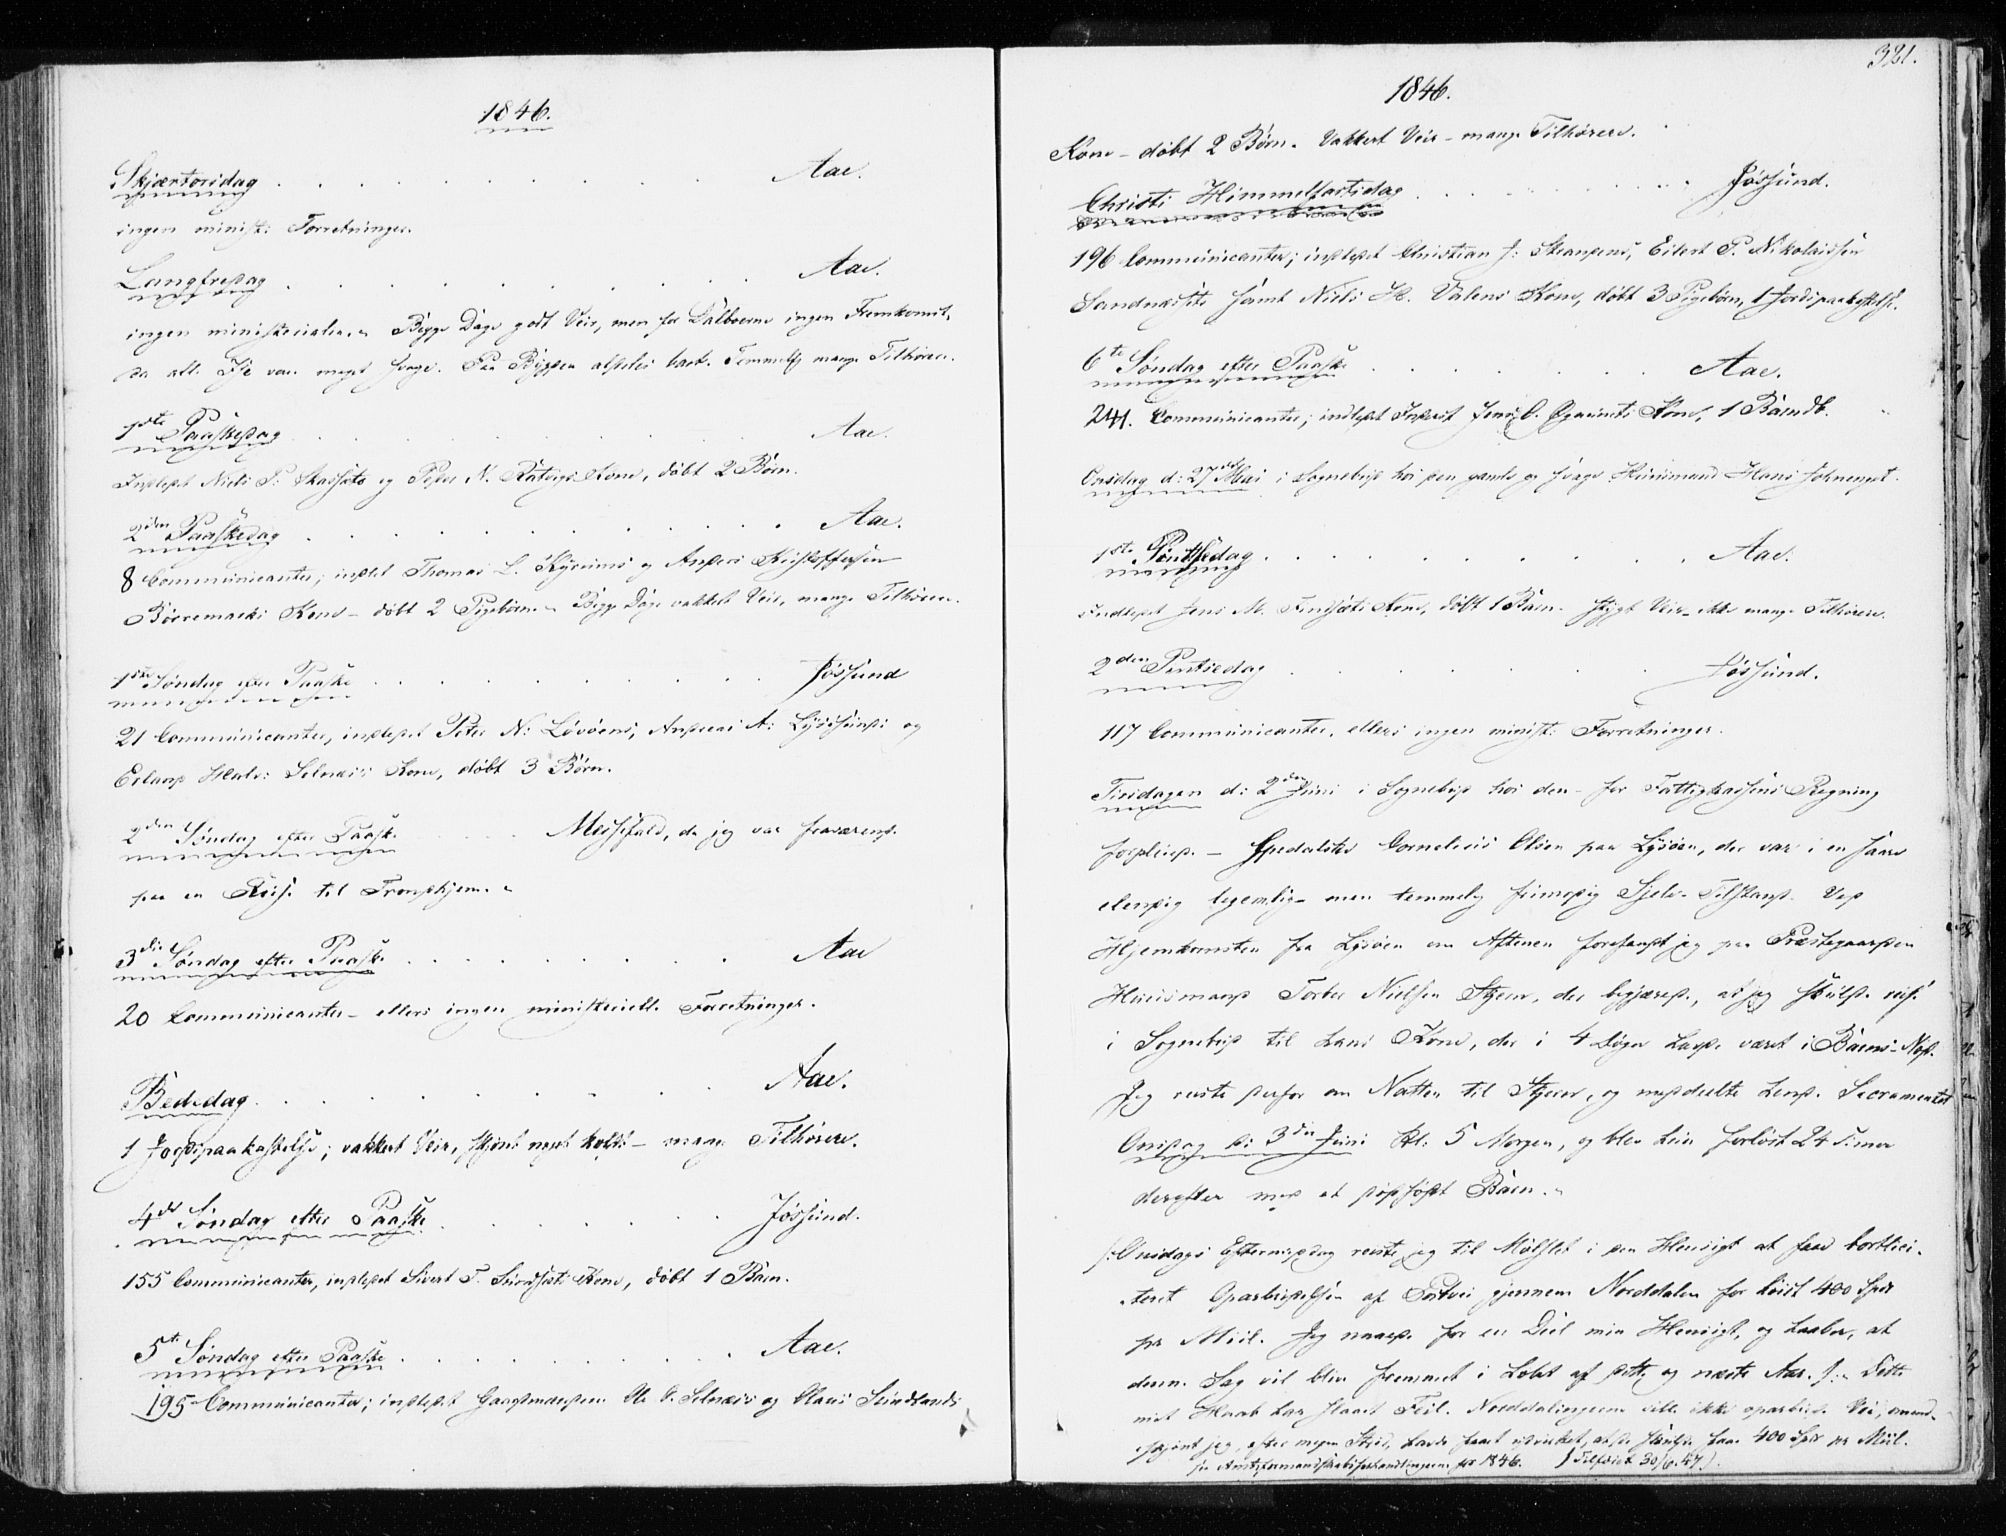 1846.
Skjærtorsdag . . . . . . . . . . . Aae.
ingen minist: Forretninger.
Langfredag . . . . . . . . . . Aae.
ingen ministerialia. Begge Dage godt Veir, men for Dalboerne ingen Fremkomst,
da all. Is var meget svag. Paa Byggden aldeles bart. Temmelig mange Tilhørere.
1ste Paaskedag . . . . . . . . . . Aae.
Indledt Niels P. og Peder N. Kone, døbt 2 Børn.
2den Paaskedag . . . . . . . . . . Aae.
8 Communicanter; indledt Thomas L. og Anders Kristoffersen
Børremarks Kone – døbt 2 Pigebørn. Begge Dage vakkert Veir, mange Tilhørere.
1ste Søndag efter Paaske . . . . . . . . . Jøssund
21 Communicanter, indledet Peter N: Løvøens, Andreas A: Lysøsunds og
Erland Halv: Selnæs's Kone, døbt 3 Børn.
2den Søndag efter Paaske . . . . Messefald, da jeg var fraværende
paa en Reise til Trondhjem.
3die Søndag efter Paaske . . . . . . . . . Aae
20 Communicanter – ellers ingen ministerielle Forretninger.
Bededag . . . . . . . . . . Aae.
1 Jordspaakastelse; vakkert Veir, skjønt noget koldt – mange Tilhørere.
4de Søndag efter Paaske . . . . . . . . Jøssund.
155 Communicanter, indledet Sivert T. Kone, døbt 1 Barn.
5te Søndag efter Paaske . . . . . . . . . Aae.
195 Communicanter; indledet Gaardmændene Ole O. Selnæs's og Claus Sundlands
321.
1846.
Kone – døbt 2 Børn. Vakkert Veir – mange Tilhørere.
Christi Himmelfartsdag . . . . . . . . . Jøssund.
196 Communicanter; indledet Christian J: Eilert P. Nikolaissen
Sandnæssets samt Niels H. Valens Kone, døbt 3 Pigebørn, 1 Jordspaakastelse.
6te Søndag efter Paaske . . . . . . . Aae.
241. Communicanter; indledet Jens O. Kone, 1 Barnd.
Onsdag d: 27de Mai i Sognebud hos den gamle og svage Huusmand Hans
1ste Pintsedag . . . . . . . . . Aae.
indledet Jens M. Kone, døbt 1 Barn. Stygt Veir – ikke mange Tilhørere.
2den Pintsedag . . . . . . . . Jøssund.
117 Communicanter, ellers ingen minist: Forretninger.
Tirsdagen d: 2den Juni i Sognebud hos den – for Fattigkassens Regning
forpleiede – Spedalske Cornelius Olsen paa Lysøen, der var i en saare
elendig legemlig – men temmelig Sjels-Tilstand. Ved
Hjemkomsten fra Lysøen om Aftenen forefandt jeg paa Præstegaarden
Huusmand Torber Nielsen der begjærede, at jeg skulde reise
i Sognebud til hans Kone, der i 4 Døgn havde været i Barns-Nød.
Jeg reiste derfor om Natten til og meddeelte hende Sacramentet
Onsdag d: 3die Juni Kl: 5 Morgen, og blev hun forløst 24 Timer
derefter med et dødfødt Barn.
/: Onsdags Eftermiddag reiste jeg til i den Hensigt at faae bortlici-
teret Oparbeidelsen af Postvei gjennem Norddalen for høist 400 Spd
pr Miil. Jeg naaede for en Deel min Hensigt, og haaber, at
denne Sag vil blive fremmet i Løbet af dette og næste Aar. :/ Dette
mit Haab har slaaet Feil. Norddalingerne ville ikke oparbeide Vei, uend-
skjønt jeg, efter megen Strid, havde faaet udvirket, at de skulde faae 400 Spd pr Miil.
se Amtsformandskabsforhandlingerne for 1846. (Tilføiet 30/6 47).